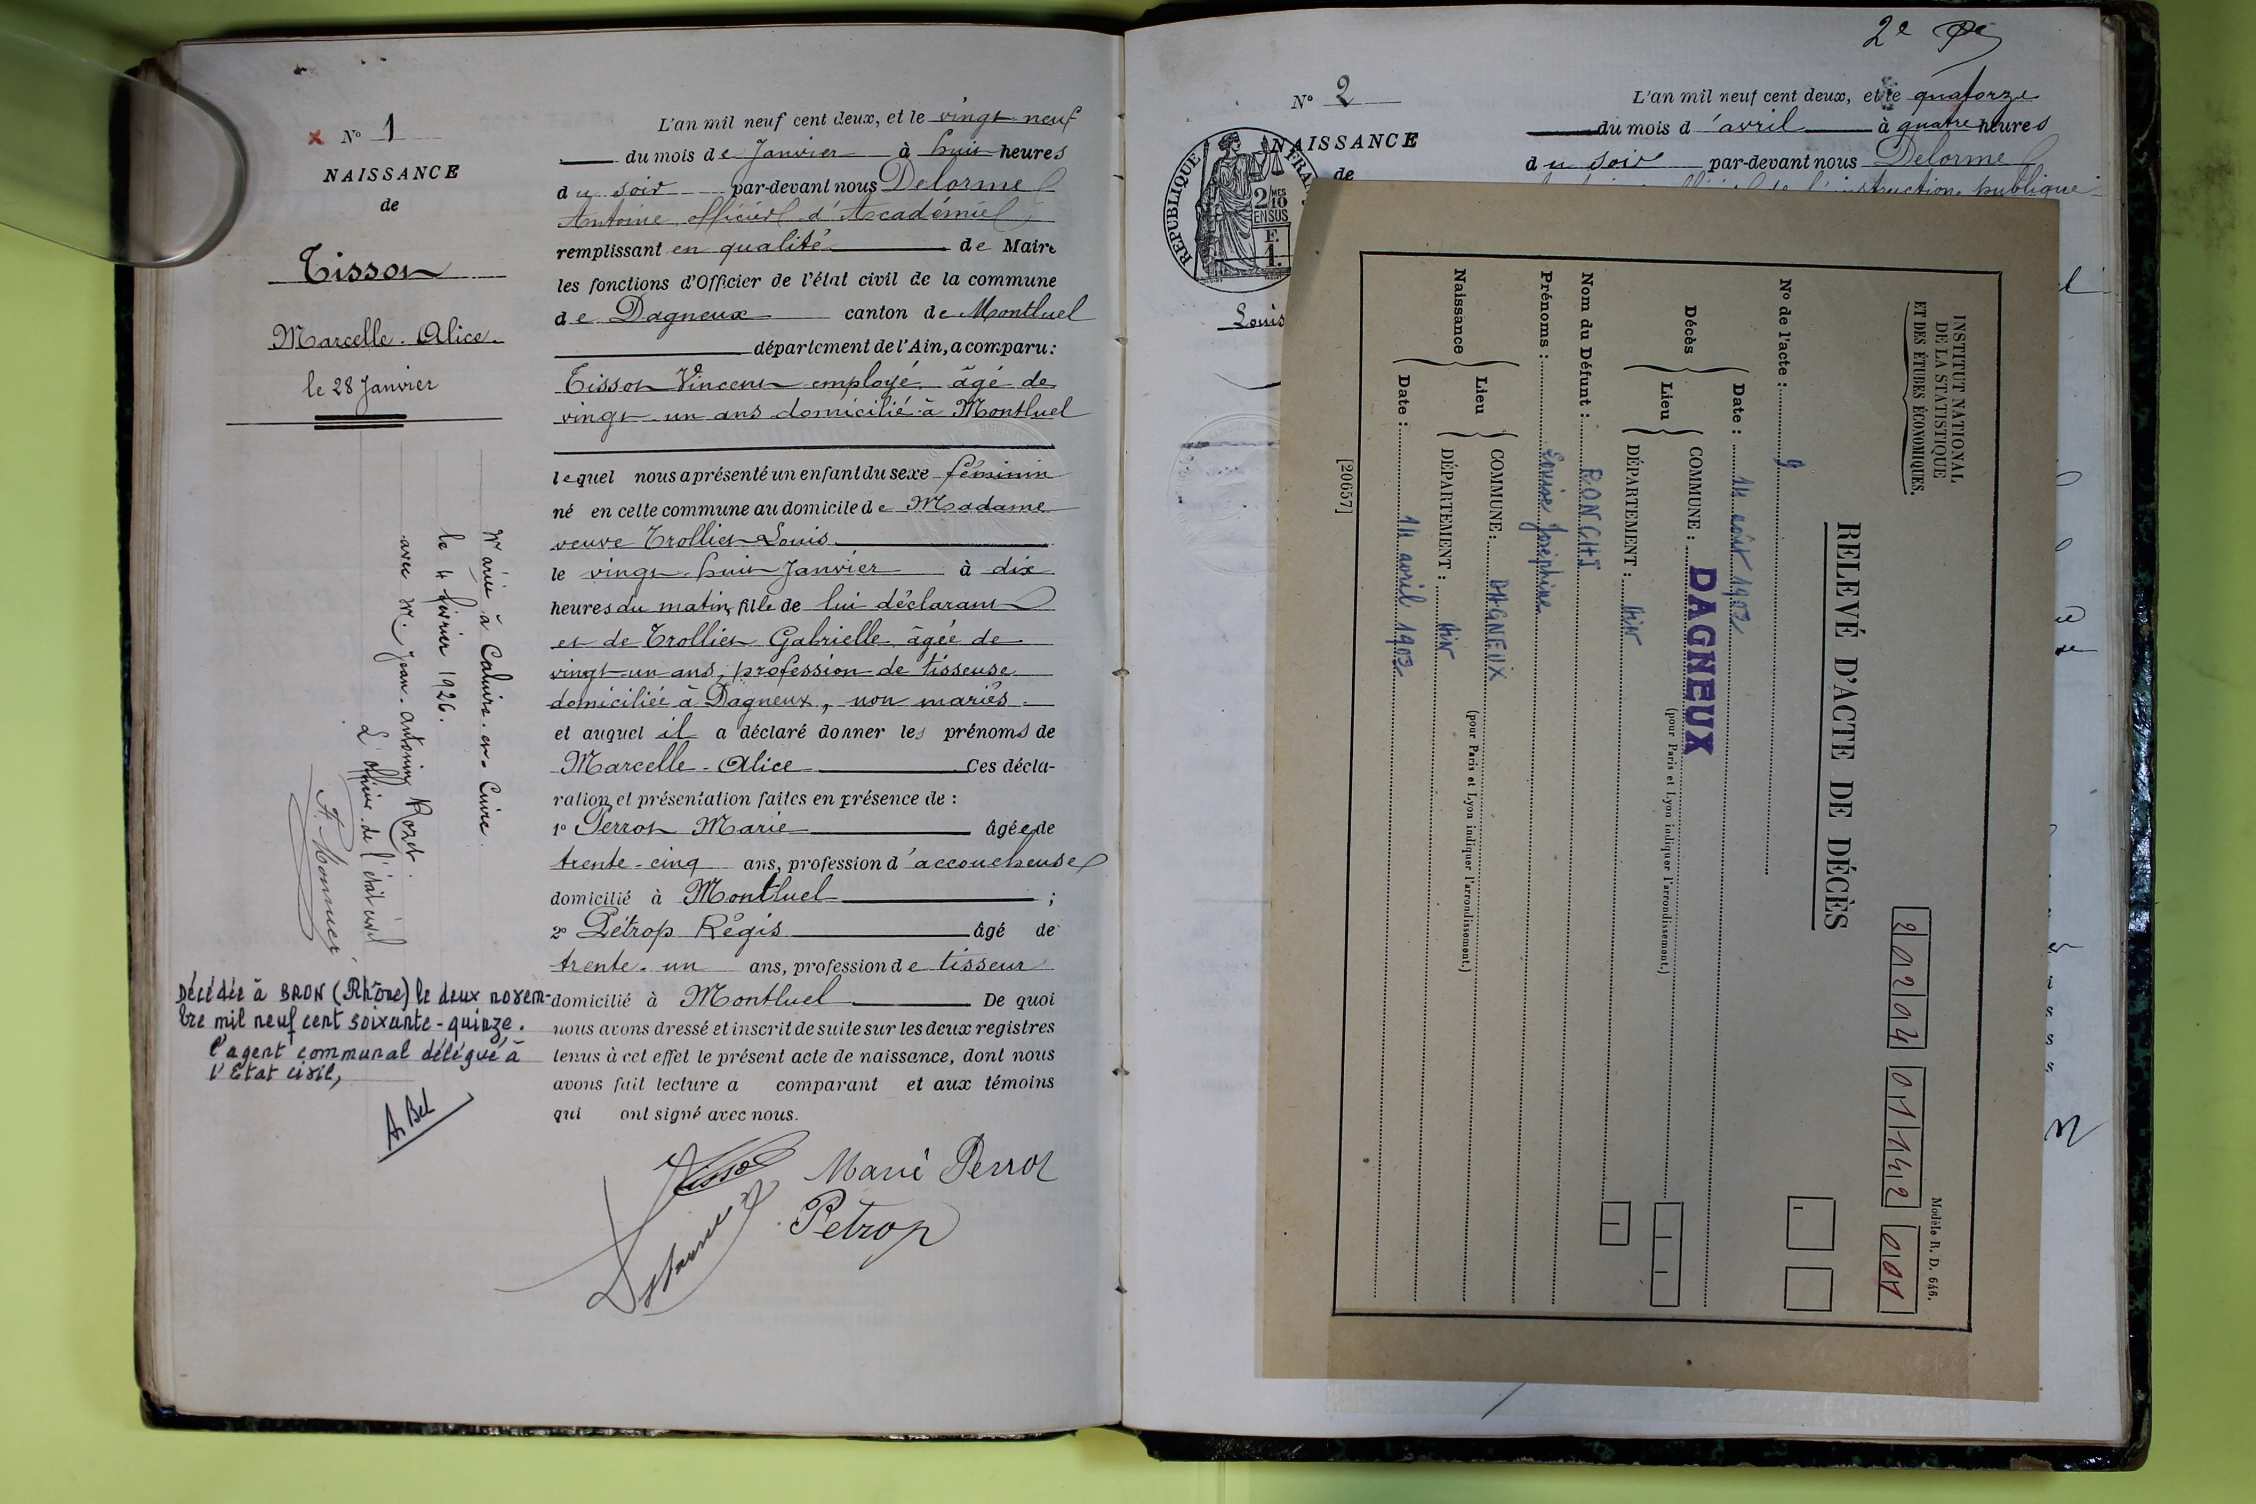 N° 1
NAISSANCE
de
Tisson
Marcelle-Alice.
le 28 Janvier
L'an mil neuf cent deux, et le vingt neuf
du mois de Janvier à huit heures
du soir par-devant nous Delorme
Antoine officier d'Académie
remplissant en qualité de Maire
les fonctions d'Officier de l'état civil de la commune
de Dagneux canton de Montluel
département de l'Ain, a comparu :
Tisson Vincent employé âgé de
vingt-un ans domicilié à Montluel
lequel nous a présenté un enfant du sexe féminin
né en cette commune au domicile de Madame
veuve Trollier Louis
le vingt-huit Janvier à dix
heures du matin, fille de lui déclarant
et de Trollier Gabrielle âgée de
vingt-un ans, profession de tisseuse
domiciliée à Dagneux, non mariés.
et auquel il a déclaré donner les prénoms de
Marcelle-Alice Ces décla-
ration et présentation faites en présence de :
1° Perrot Marie âgée de
trente-cinq ans, profession d'accoucheuse
domicilié à Montluel ;
2° Pétrop Régis âgé de
trente-un ans, profession de tisseur
domicilié à Montluel De quoi
nous avons dressé et inscrit de suite sur les deux registres
tenus à cet effet le présent acte de naissance, dont nous
avons fait lecture a comparant et aux témoins
qui ont signé avec nous.
Tisson Marie Perrot
Petrop
Mariée à Caluire-en-Cuire
le 4 février 1926.
avec M. Jean-Antonin Rozet.
L'officier de l'état civil
Décédée à BRON (Rhône) le deux novem-
bre mil neuf cent soixante-quinze.
l'agent communal délégué à
l'Etat civil,
A. Bel
2e
N° 2
NAISSANCE
de
RÉPUBLIQUE FRAN
2 MES
10
EN SUS
F.
1.
Louis
L'an mil neuf cent deux, et le quatorze
du mois d'avril à quatre heures
du soir par-devant nous Delorme
l'instruction publique
INSTITUT NATIONAL
DE LA STATISTIQUE
ET DES ÉTUDES ÉCONOMIQUES.
RELEVÉ D'ACTE DE DÉCÈS
Modèle R. D. 646.
20204 01142 001
N° de l'acte : 9
Décès
Date : 14 août 1902
Lieu
COMMUNE : DAGNEUX
(pour Paris et Lyon indiquer l'arrondissement.)
DÉPARTEMENT : Ain
Nom du Défunt : RONCHI
Prénoms : Louise Joséphine
Naissance
Lieu
COMMUNE : DAGNEUX
(pour Paris et Lyon indiquer l'arrondissement.)
DÉPARTEMENT : Ain
Date : 14 avril 1902
[20657]